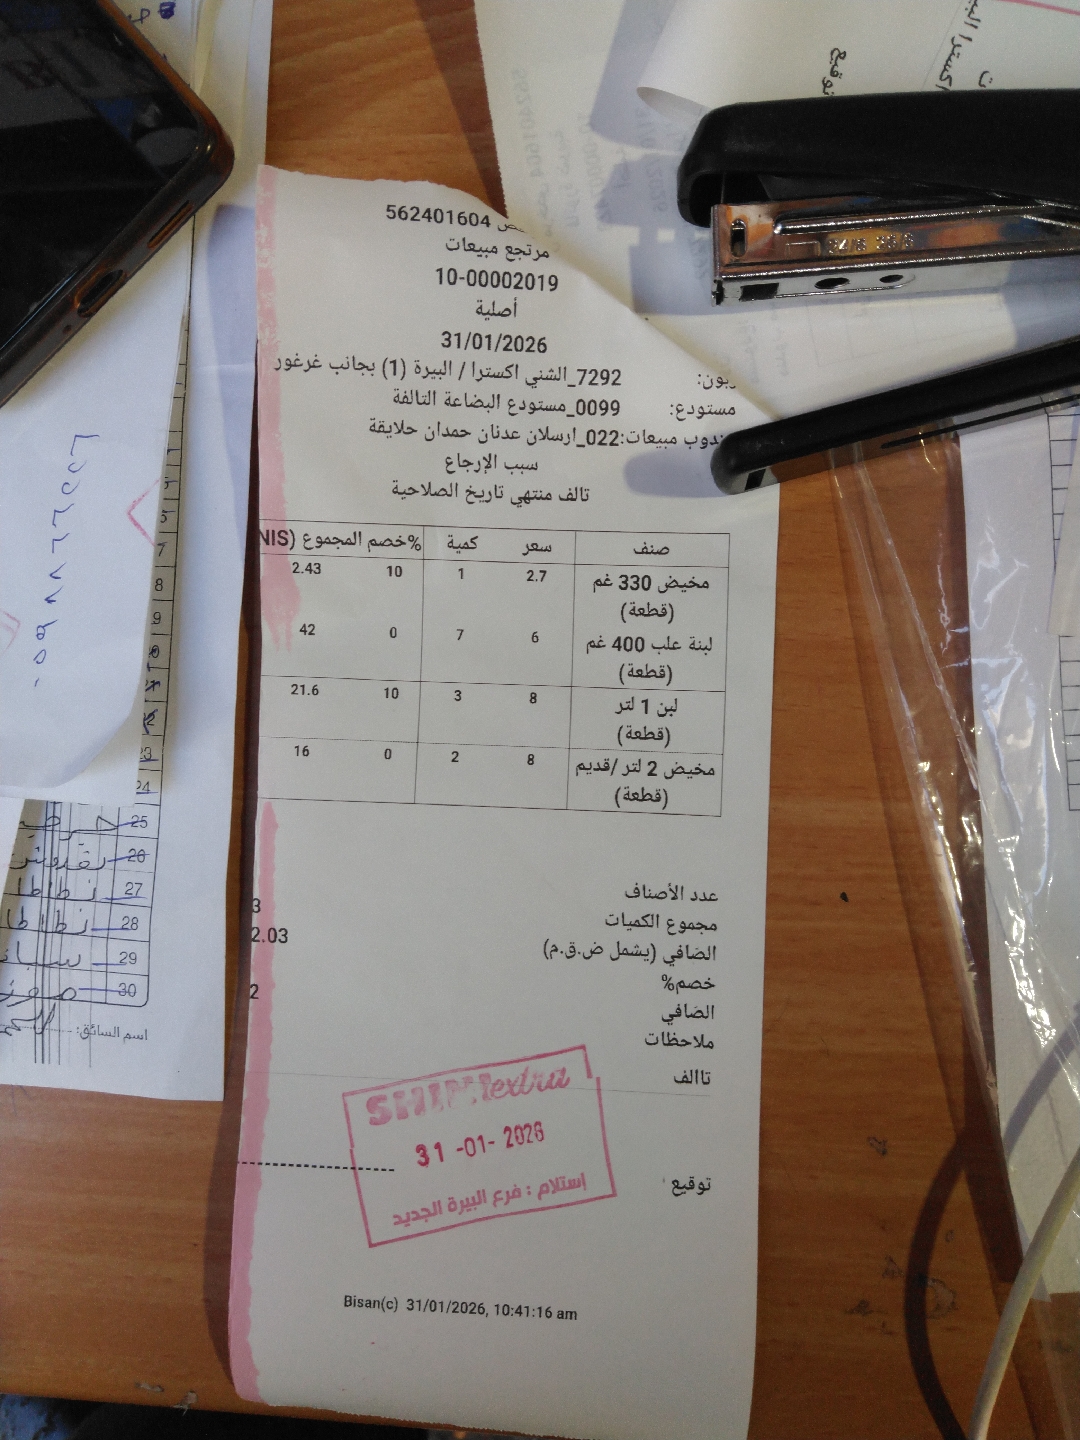 562401604
مرتجع مبيعات
10-00002019
أصلية
31/01/2026
7292_الشني اكسترا / البيرة (1) بجانب غرغور
مستودع: 0099_مستودع البضاعة التالفة
مبيعات:022_ارسلان عدنان حمدان حلايقة
سبب الإرجاع
تالف منتهي تاريخ الصلاحية
صنف سعر كمية %خصم المجموع (NIS
مخيض 330 غم 2.7 1 10 2.43
(قطعة)
لبنة علب 400 غم 6 7 0 42
(قطعة)
لبن 1 لتر 8 3 10 21.6
(قطعة)
مخيض 2 لتر /قديم 8 2 0 16
(قطعة)
عدد الأصناف
مجموع الكميات 3
الصافي (يشمل ض.ق.م) 2.03
خصم%
الصافي 2
ملاحظات
تاالف
SHINI extra
31 -01- 2026
إستلام : فرع البيرة الجديد
توقيع
Bisan(c) 31/01/2026, 10:41:16 am
توقيع
24/6 26/6
7
8
9
25
26
27
28
29
30
اسم السائق: